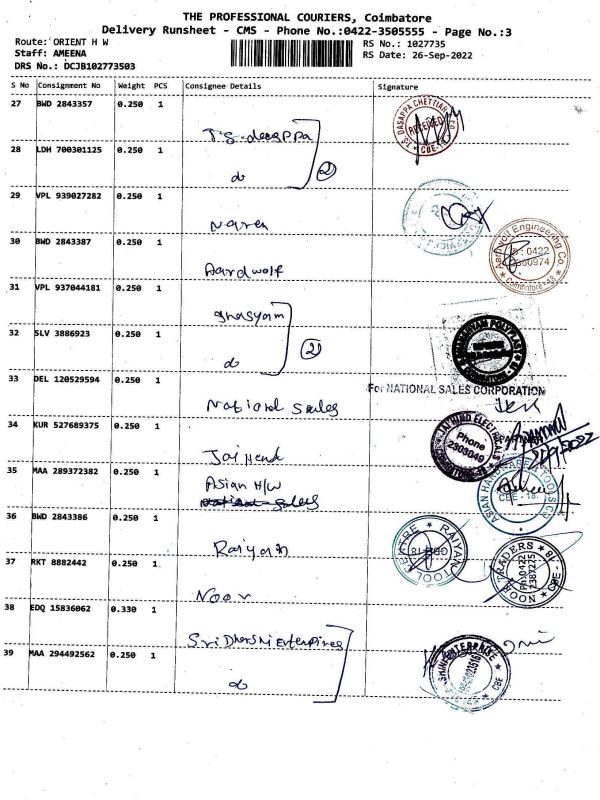 THE PROFESSIONAL COURIERS, Coimbatore
Delivery Runsheet - CMS - Phone No.:0422-3505555 - Page No.:3
Route: ORIENT H W RS No.: 1027735
Staff: AMEENA RS Date: 26-Sep-2022
DRS No.: DCJB102773503
S No Consignment No Weight PCS Consignee Details Signature
27 BWD 2843357 0.250 1
T.S. dasappa
DASAPPA CHETTIAR & CO
RECEIVED
CBE-1
28 LDH 700301125 0.250 1
do
2
29 VPL 939027282 0.250 1
Naren
30 BWD 2843387 0.250 1
Aardwolf
Aardwolf Engineering Co.
: 0422
Coimbatore - 18
31 VPL 937044181 0.250 1
ghasyam
32 SLV 3886923 0.250 1
do
2
GHANSHYAM POLYPLAST
33 DEL 120529594 0.250 1
National Sales
For NATIONAL SALES CORPORATION
PARTNER
34 KUR 527689375 0.250 1
JaiHend
JAIHIND ELECTRICALS
Phone
2303049
35 MAA 289372382 0.250 1
Asian H/W
ASIAN HARDWARE & TOOLS CO
CBE - 18.
36 BWD 2843386 0.250 1
Raiyan
RAIYAN TOOL CENTRE
CBE-18
37 RKT 8882442 0.250 1
Noor
NOOR TRADERS
CBE - 18
Ph:0422
2387225
38 EDQ 15836062 0.330 1
Sri Dharshni Enterprises
39 MAA 294492562 0.250 1
do
ENTERPRISE
CBE